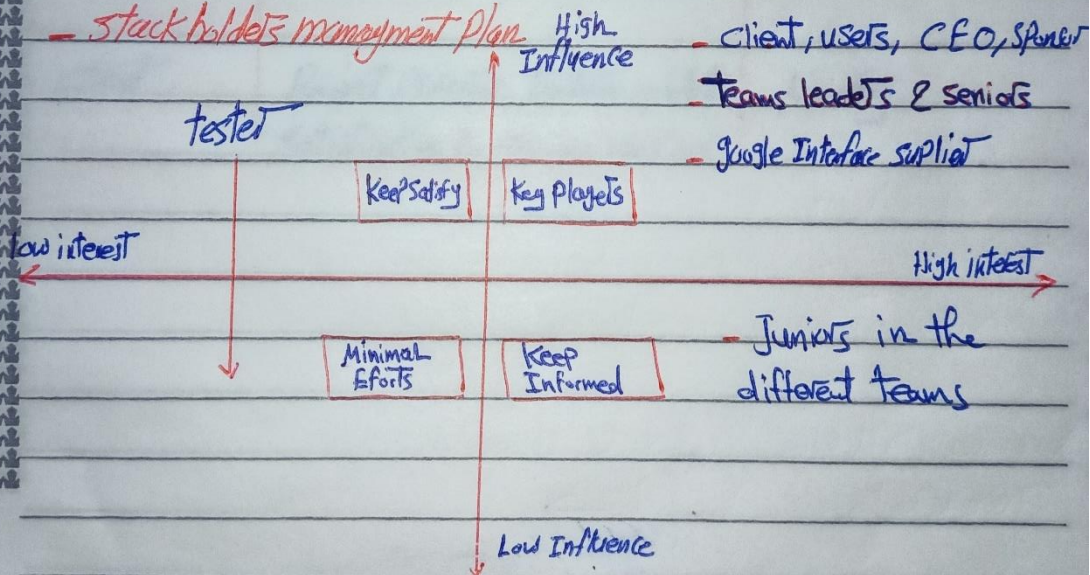 - stackholders managment Plan
High
Influence
- Client, users, CEO, Sponer
- teams leaders & seniors
- google Interface suplier
tester
Keep Satisfy
Key Players
Low interest
High interest
Minimal
Eforts
Keep
Informed
- Juniors in the
different teams
Low Influence